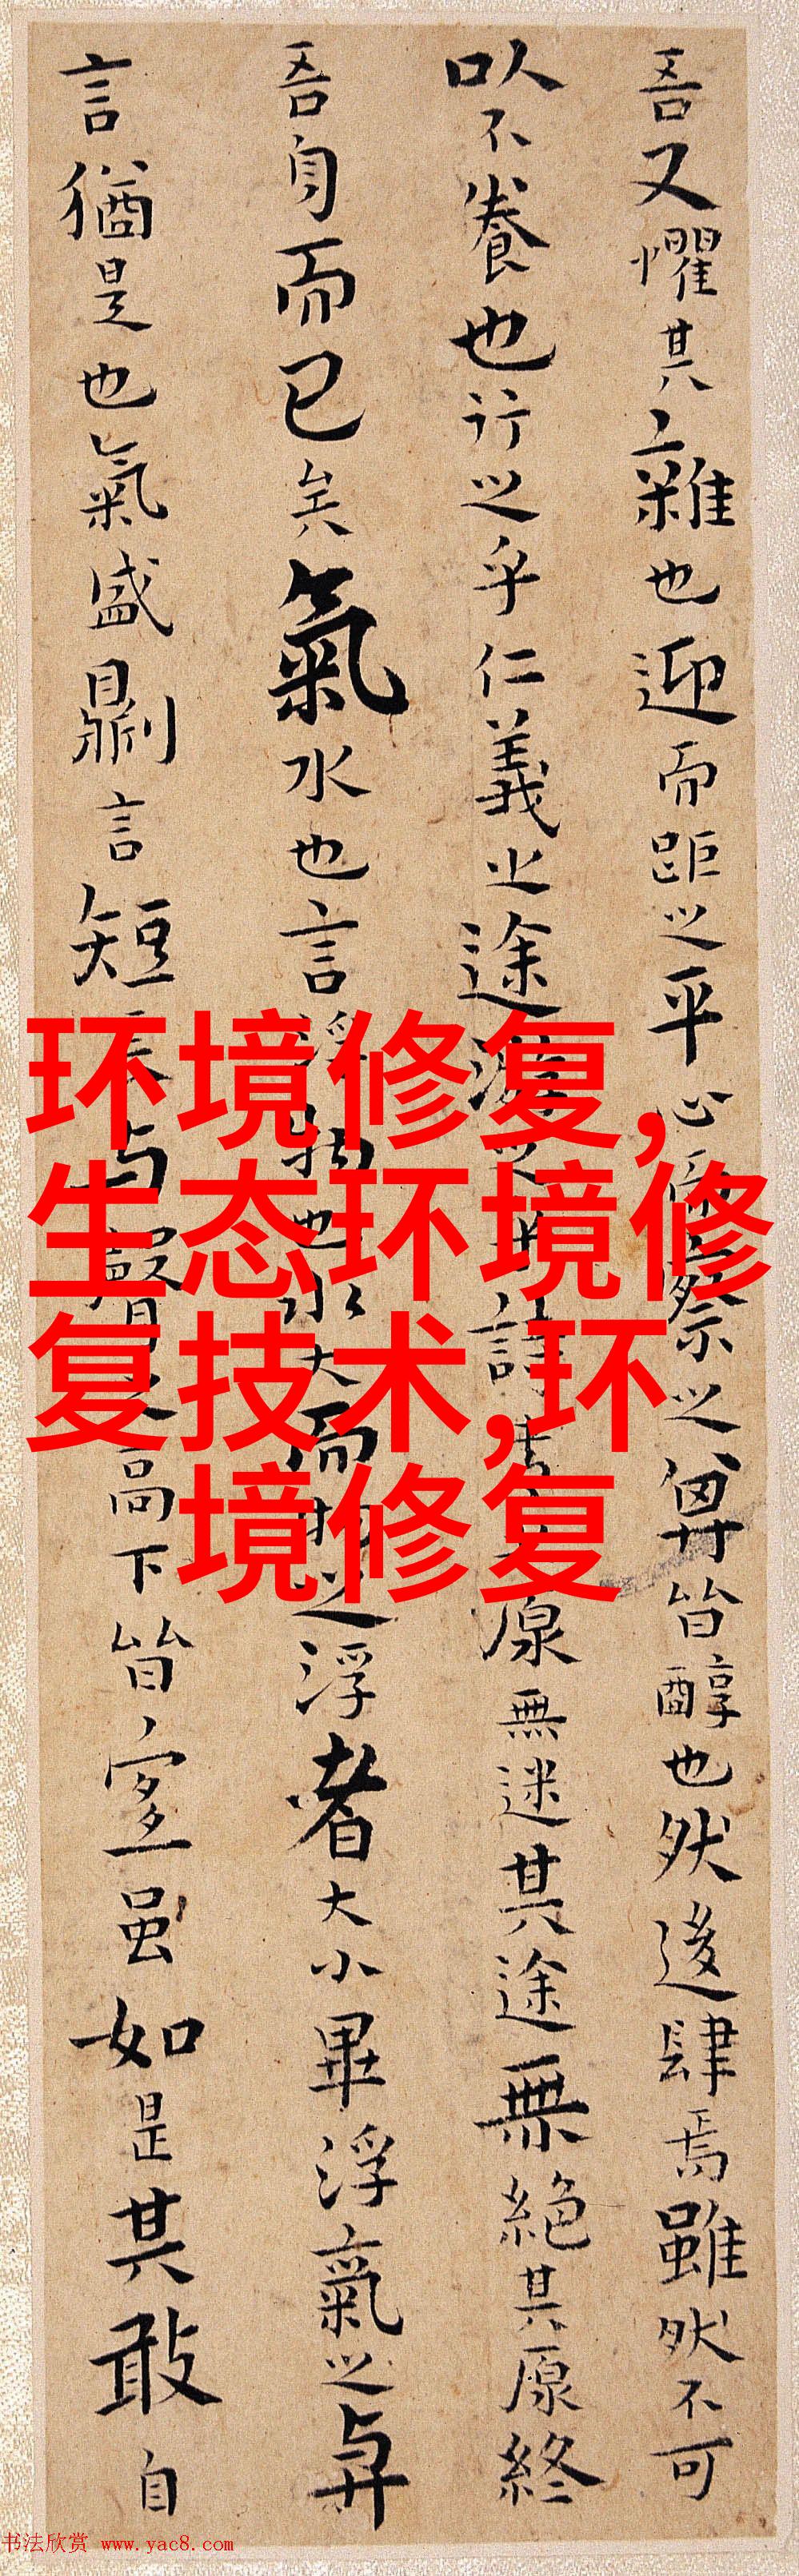 吾又懼其雜也迎而距之平心而察之其皆醇也然後肆焉雖然不可
以不養也行之乎仁義之途游之乎詩書之原無迷其途無絕其原終
吾身而已矣氣水也言浮物也水大而物之浮者大小畢浮氣之與
言猶是也氣盛則言短長與聲之高下皆宜虽如是其敢自
环境修复,
生态环境修
复技术,环
境修复
书法欣赏 www.yac8.com